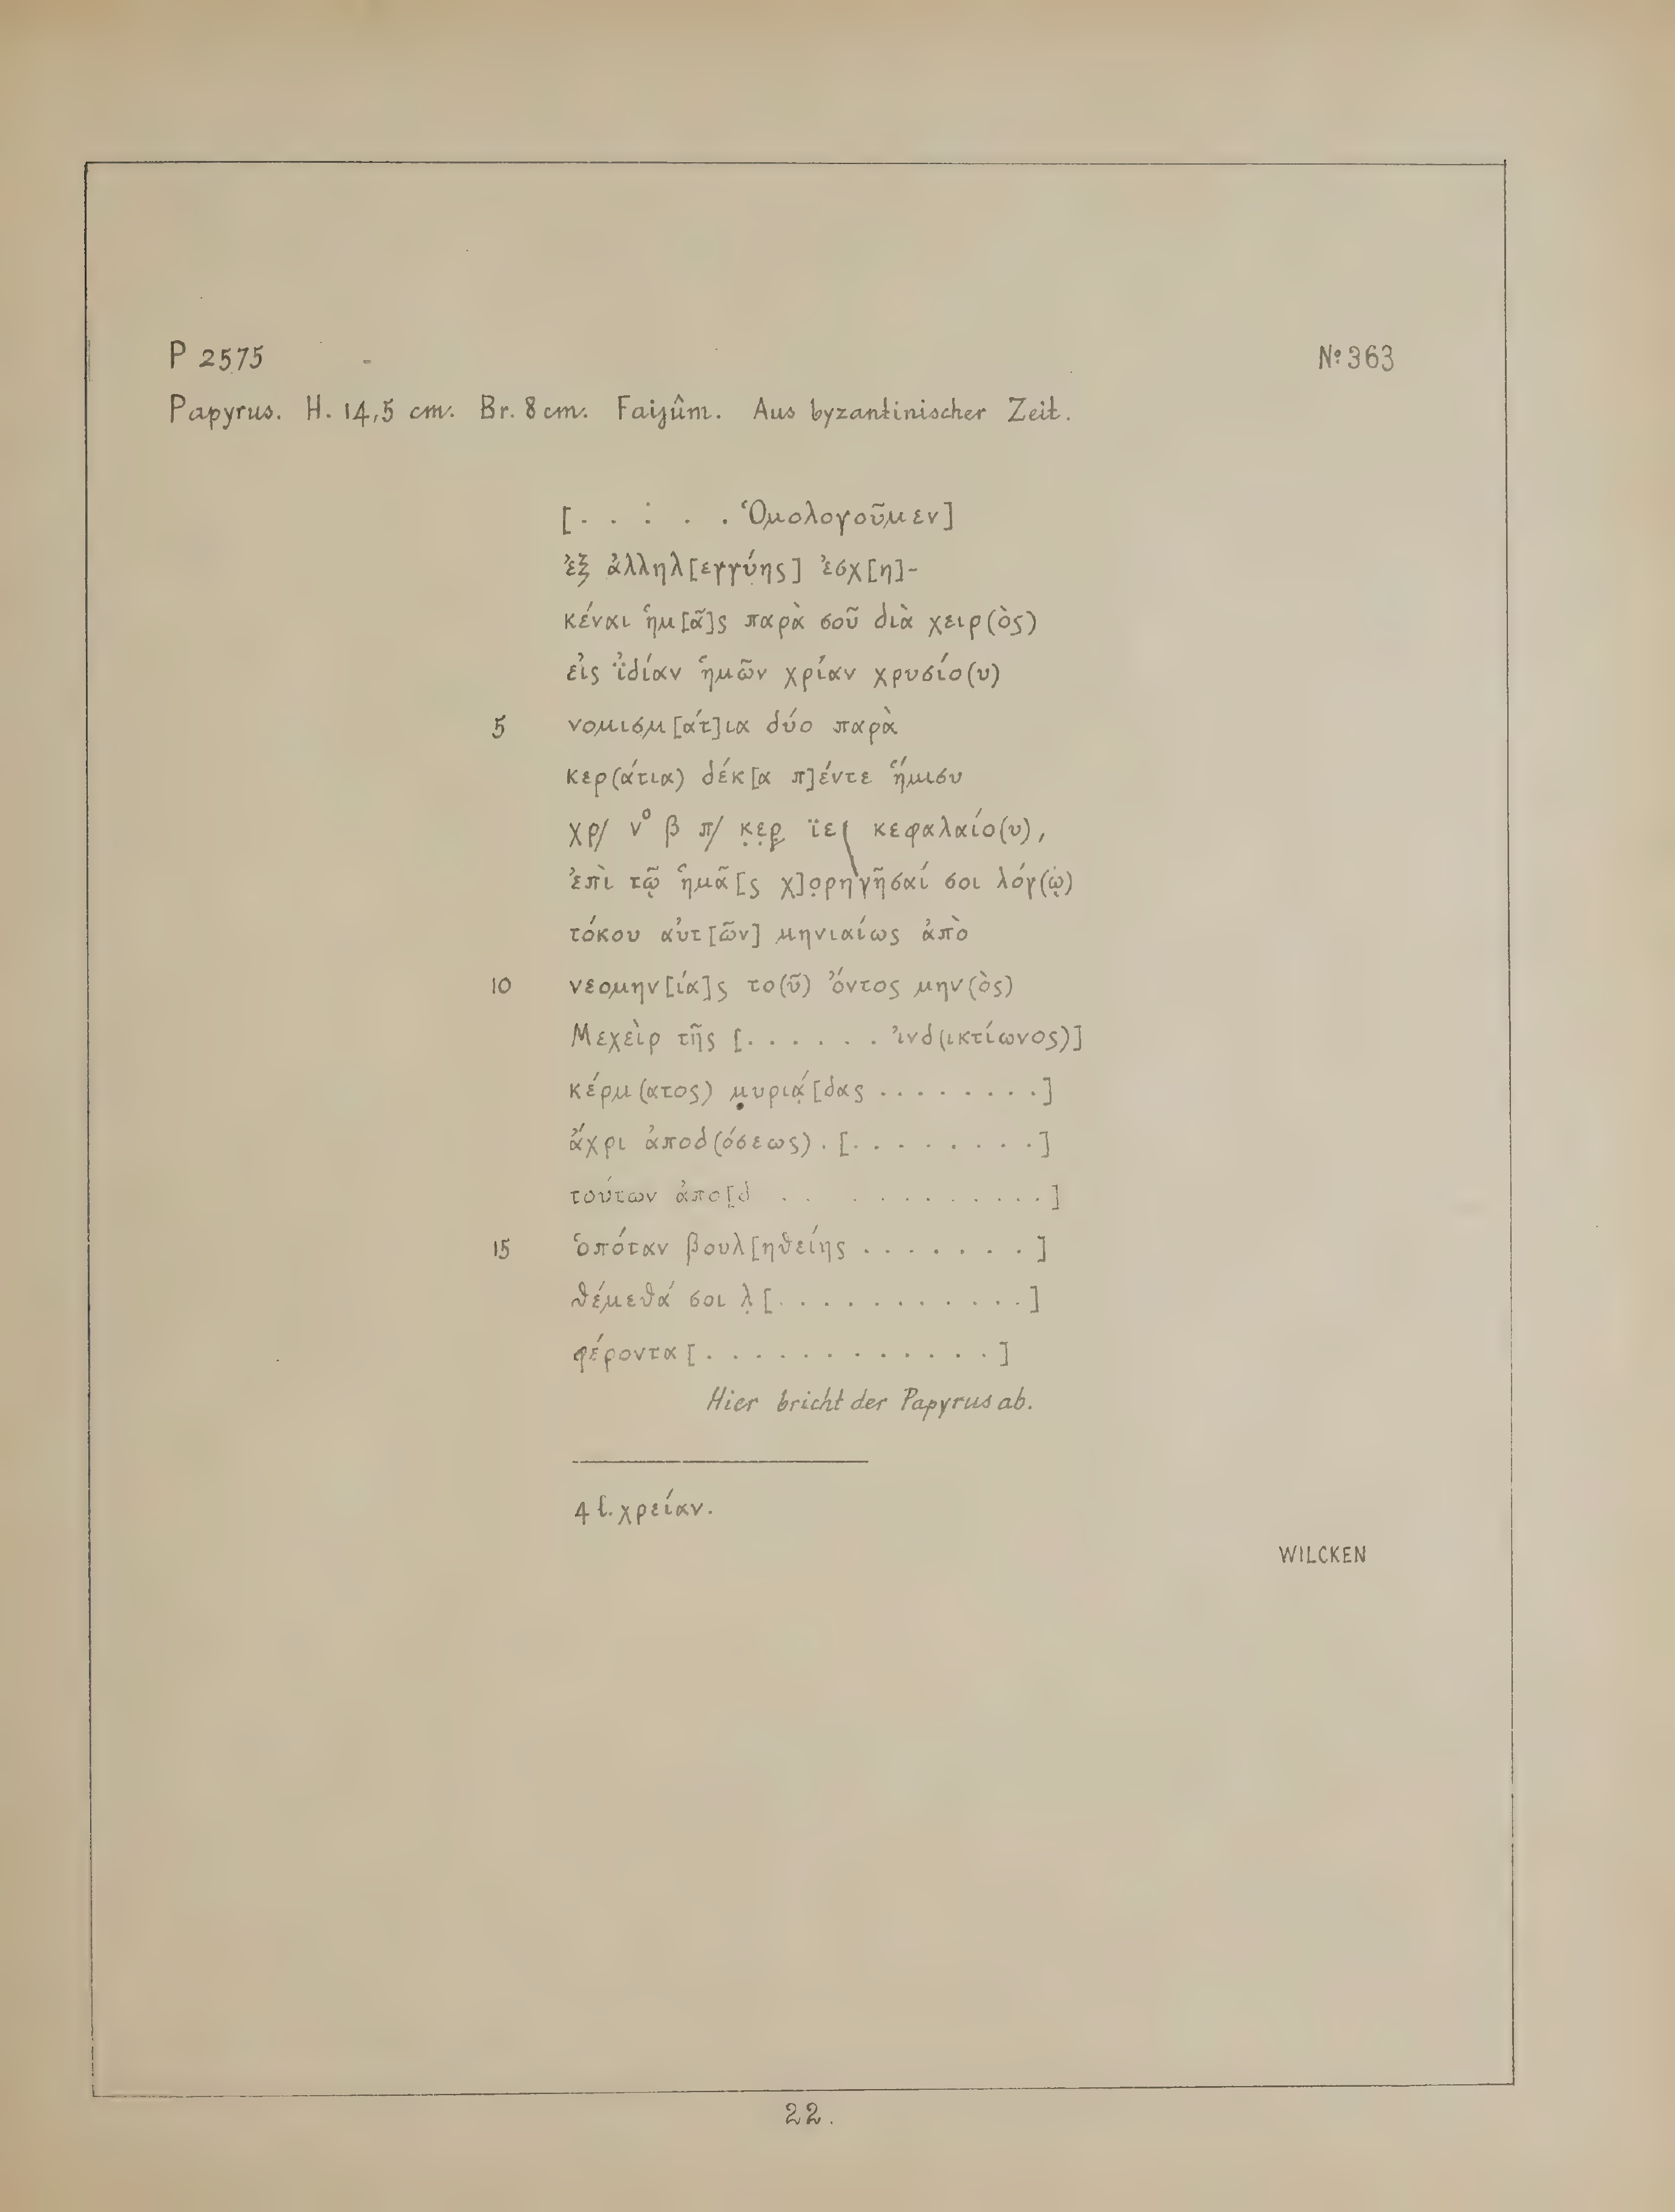 P 2575 № 363
Papyrus. H. 14,5 cm. Br. 8 cm. Faijûm. Aus byzantinischer Zeit.
[. . . . . Ὁμολογοῦμεν]
ἐξ ἀλληλ[εγγύης] ἐσχ[η]-
κέναι ἡμ[ᾶ]ς παρὰ σοῦ διὰ χειρ(ὸς)
εἰς ἰ̈δίαν ἡμῶν χρίαν χρυσίο(υ)
5 νομισμ[άτ]ια δύο παρὰ
κερ(άτια) δέκ[α π]έντε ἥμισυ
χρ/ νº β π/ κ̣ε̣ρ̣ ϊε ( κεφαλαίο(υ),
ἐπὶ τῷ ἡμᾶ[ς χ]ο̣ρηγῆσαί σοι λόγ(ῳ)
τόκου αὐτ[ῶν] μηνιαίως ἀπὸ
10 νεομην[ία]ς το(ῦ) ὄντος μην(ὸς)
Μεχεὶρ τῆς [. . . . . . ἰνδ(ικτίωνος)]
κέρμ(ατος) μ̣υριά̣[δας . . . . . . . .]
ἄχρι ἀποδ(όσεως) . [. . . . . . . .]
τούτων ἀπο[δ . . . . . . . . . . .]
15 ὁπόταν βουλ[ηθείης . . . . . . .]
θέμεθά σοι λ̣ [. . . . . . . . . . .]
φέροντα [. . . . . . . . . . . . .]
Hier bricht der Papyrus ab.
4 l. χρείαν.
WILCKEN
22.